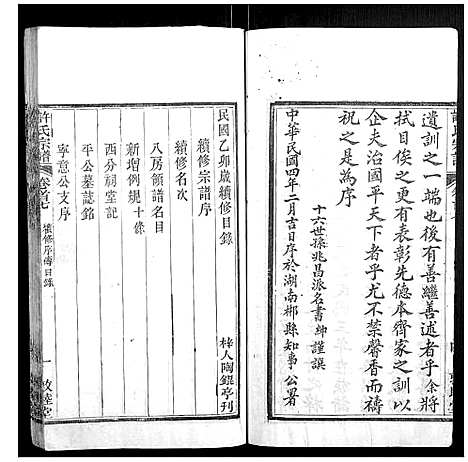 遺訓之一端也後有善繼善述者乎余將
拭目俟之更有表彰先德本齊家之訓以
企夫治國平天下者乎尤不禁馨香而禱
祝之爲序
中華民國四年二月吉日序於湖南郴縣知事公署
十六世孫兆昌派名書紳謹撰
民國乙卯歲續修目錄
續修宗譜序
續修名次
八房領譜名目
新增例規十條
西分祠堂記
平公墓誌銘
寧意公支序
梓人陶錕亭刊
許氏宗譜
卷首七
續修序傳目錄
一
敦睦堂